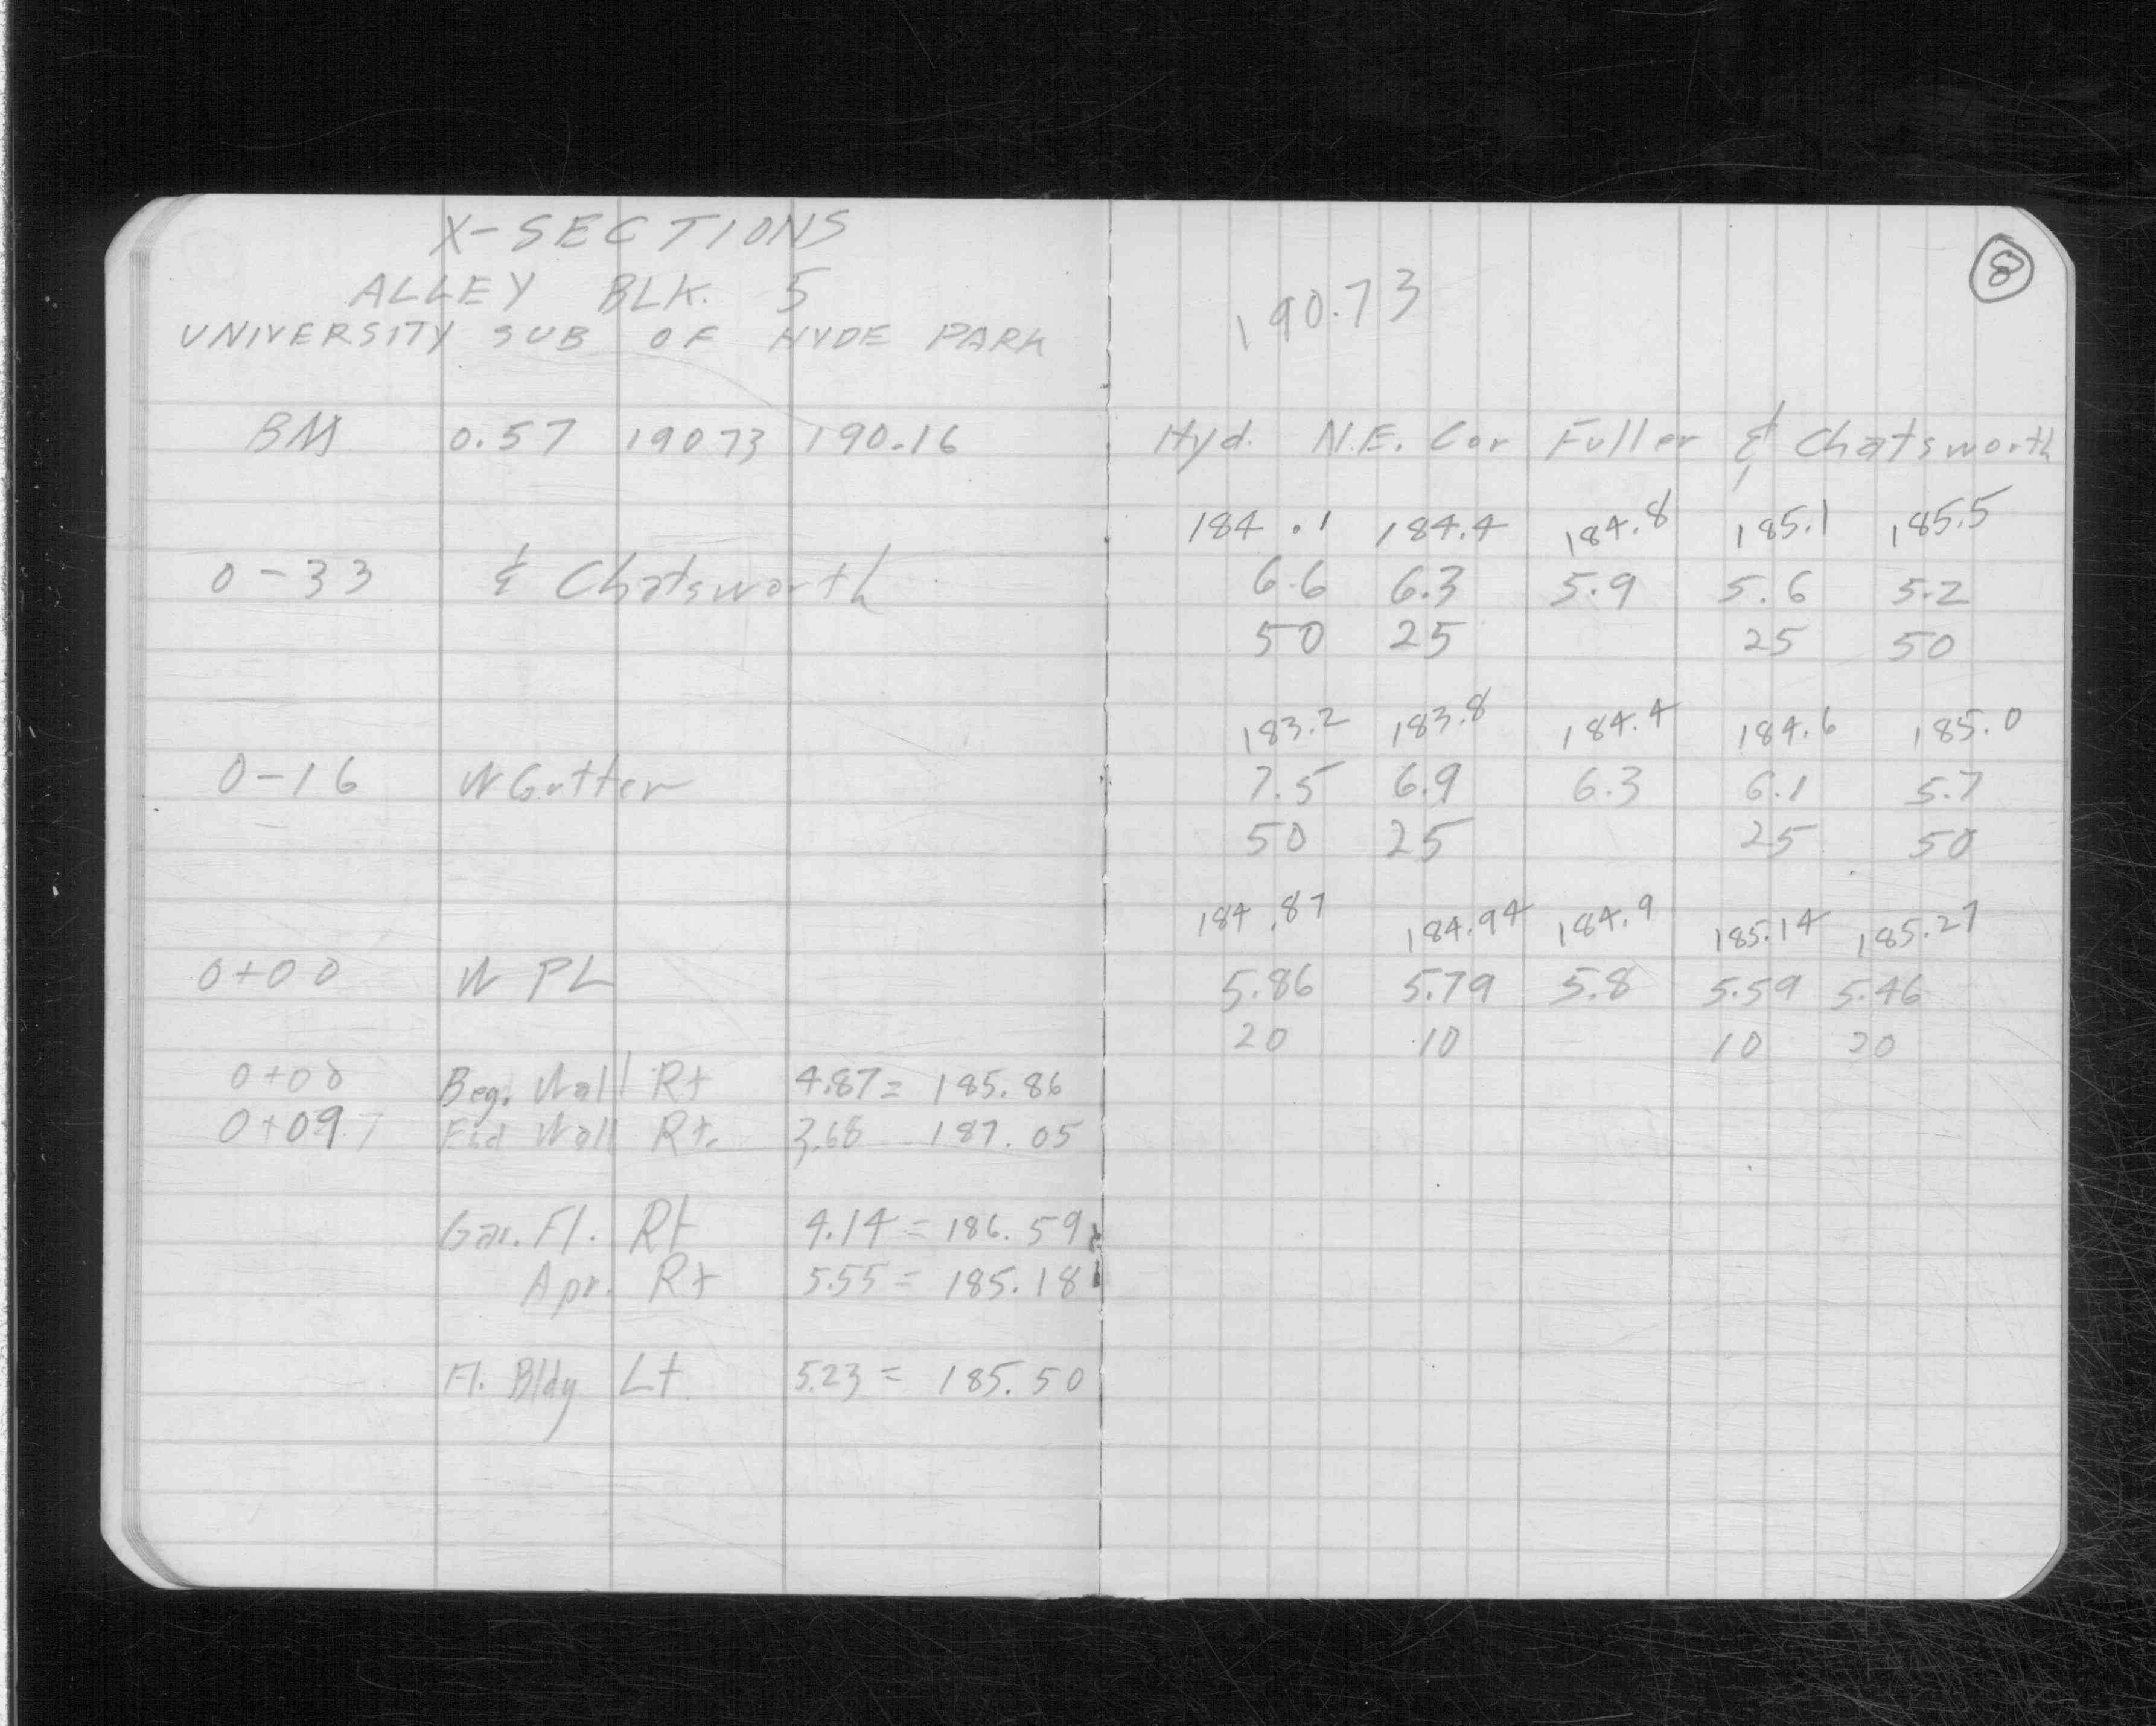 X-SECTIONS
ALLEY BLK. 5
UNIVERSITY SUB OF HYDE PARK
BM 0.57 190.73 190.16
0-33 ℄ Chatsworth
0-16 W Gutter
0+00 W PL
0+08 Beg. Wall Rt 4.87 = 185.86
0+09.7 End Wall Rt. 3.68 187.05
Gar. Fl. Rt 4.14 = 186.59
Apr. Rt 5.55 = 185.18
Fl. Bldg Lt. 5.23 = 185.50
8
190.73
Hyd. N.E. Cor Fuller & Chatsworth
℄
184.1 184.4 184.8 185.1 185.5
6.6 6.3 5.9 5.6 5.2
50 25 25 50
183.2 183.8 184.4 184.6 185.0
7.5 6.9 6.3 6.1 5.7
50 25 25 50
184.87 184.94 184.9 185.14 185.27
5.86 5.79 5.8 5.59 5.46
20 10 10 20